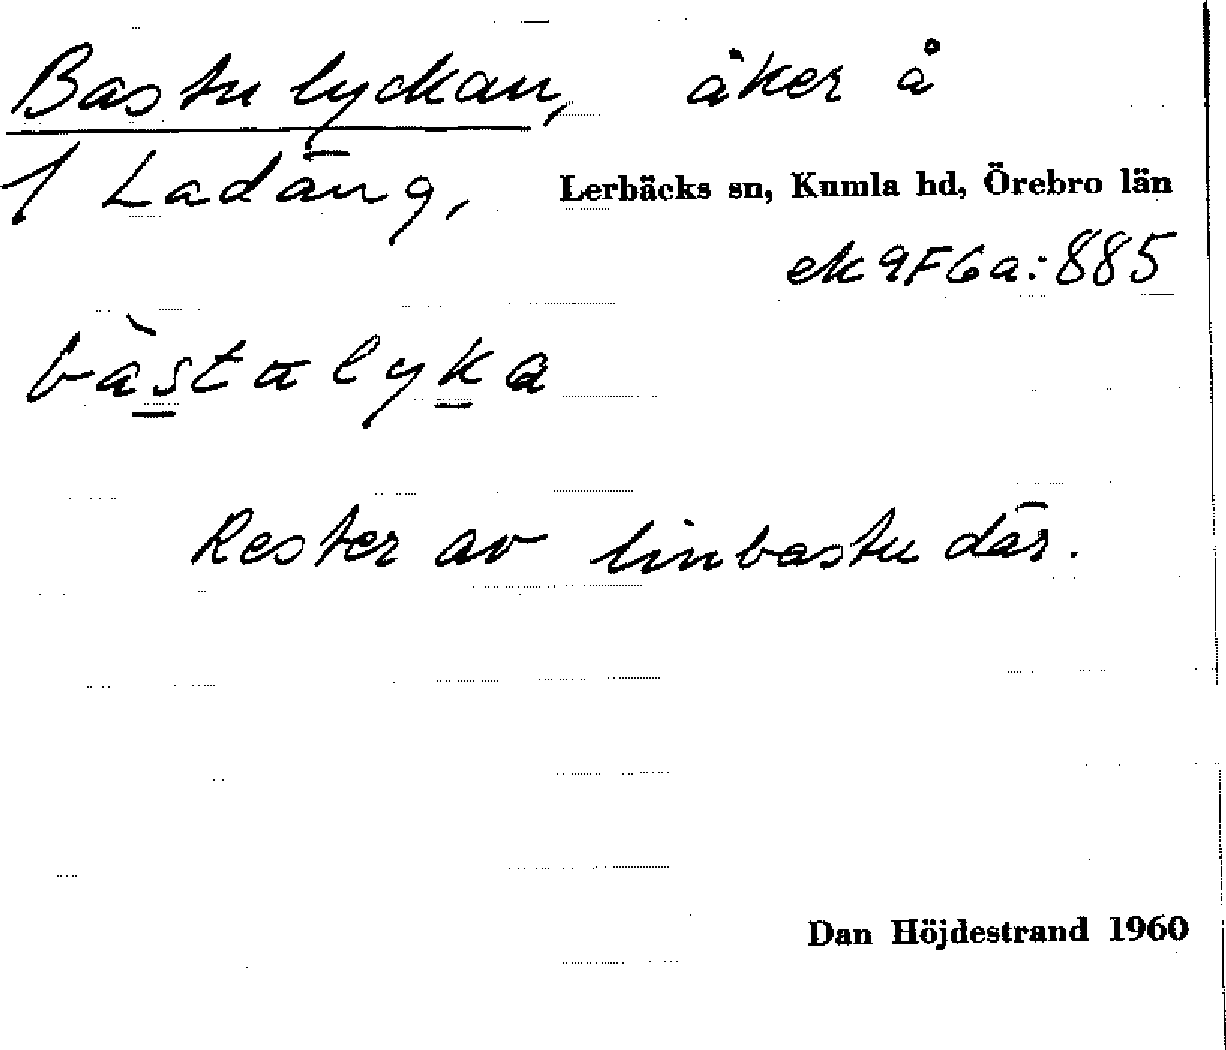 Bastulyckan, åker å
1 Ladäng, Lerbäcks sn, Kumla hd, Örebro län
ek 9F6a:885
bàstalyka
Rester av linbastu där.
Dan Höjdestrand 1960